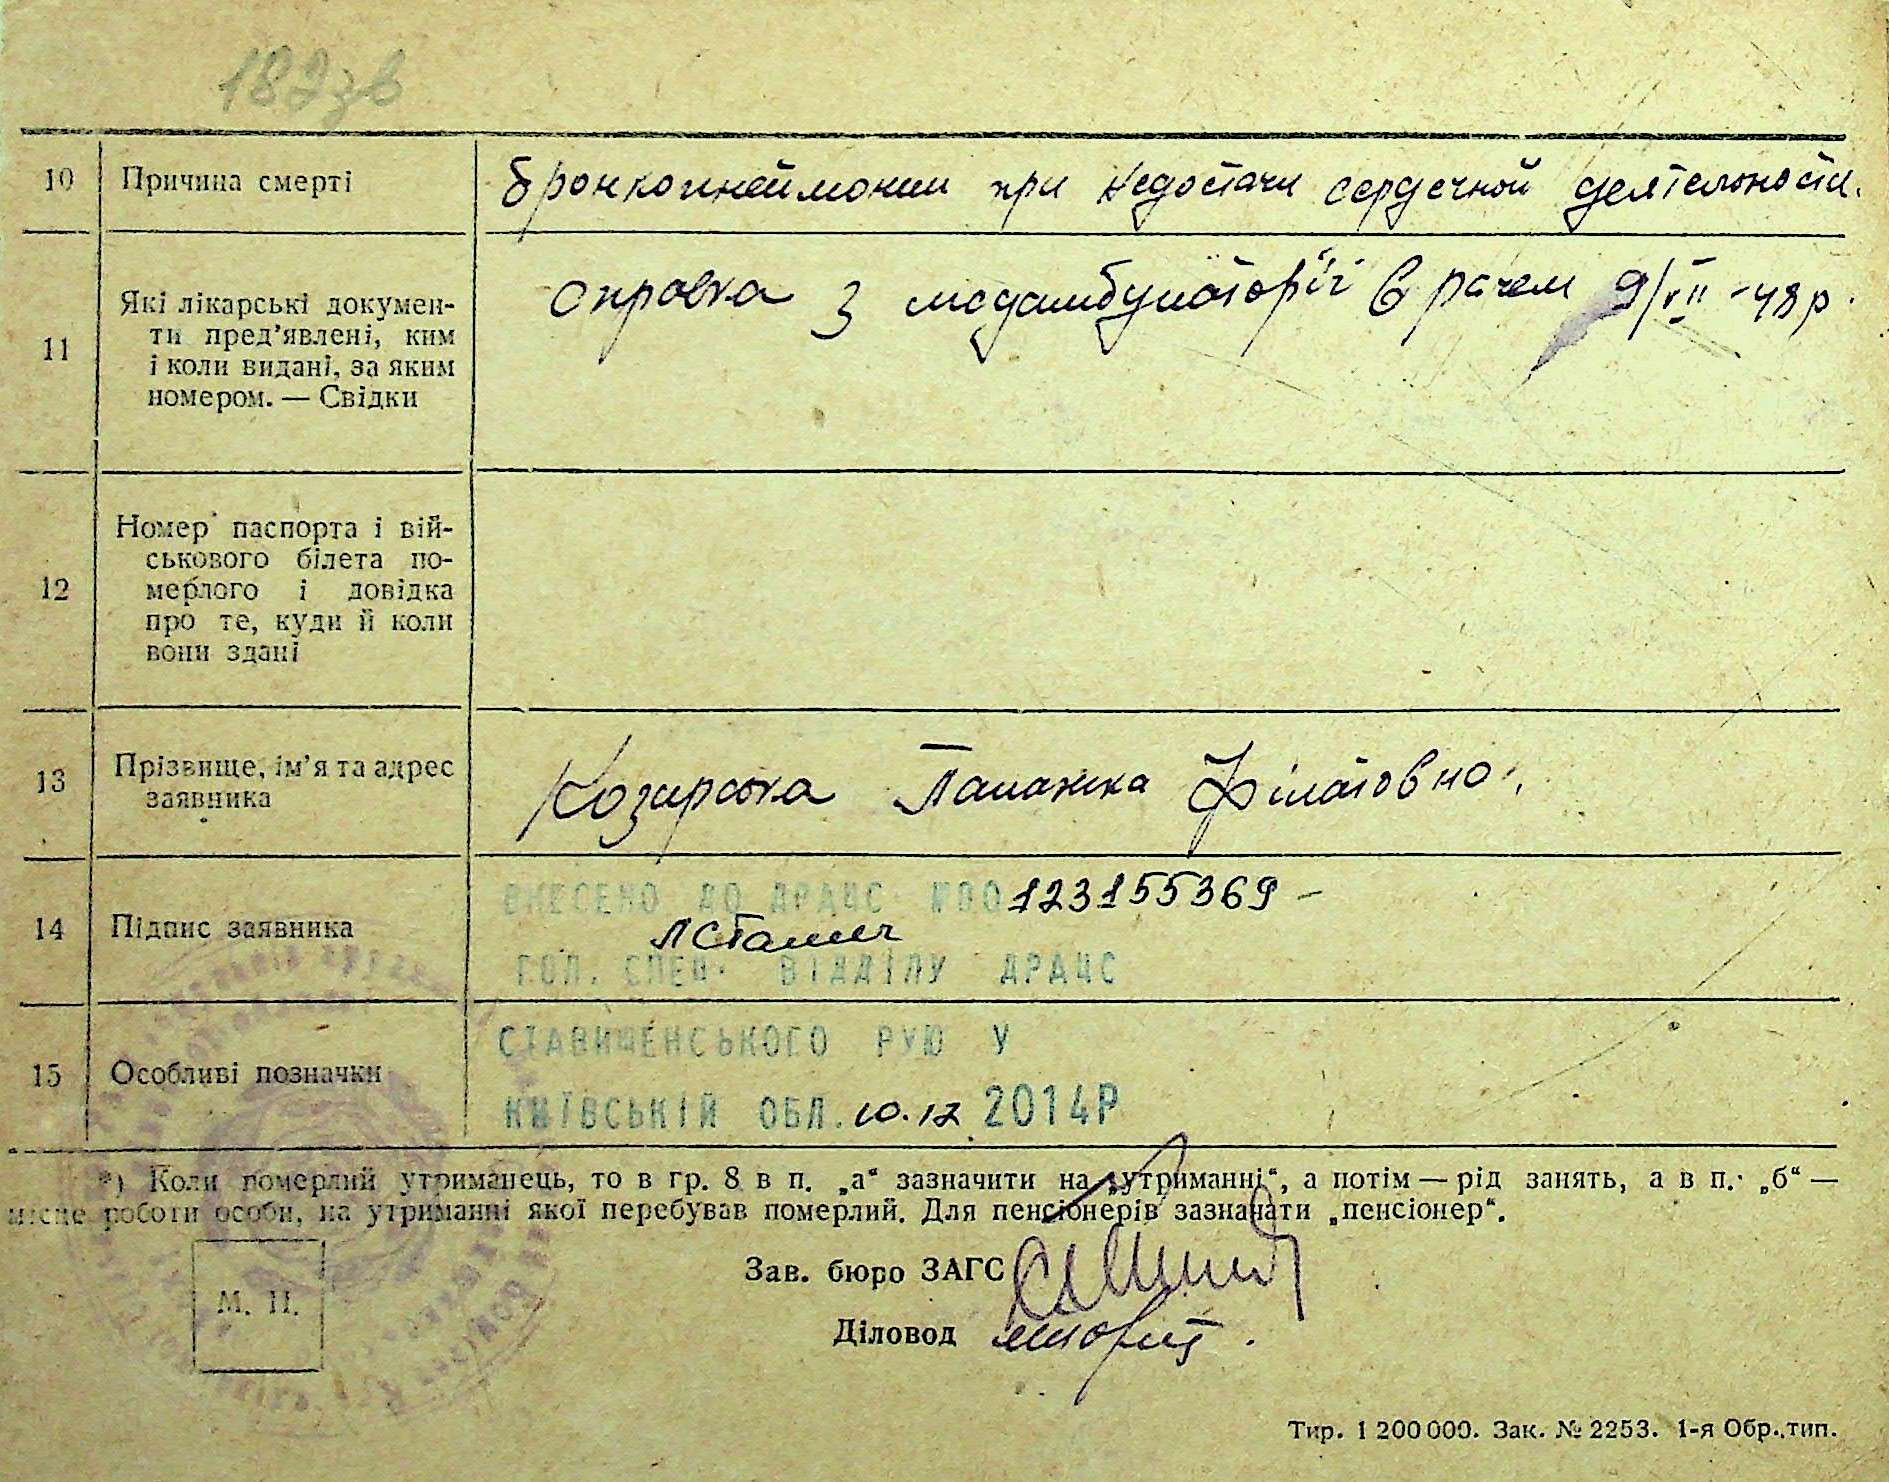 182зв
10 Причина смерті бронкопнеймонии при недостачи сердечной деятельности.
11 Які лікарські докумен-
ти пред’явлені, ким
і коли видані, за яким
номером. — Свідки
справка з медамбулаторії врачем 9/VII -48р.
12 Номер паспорта і вій-
ськового білета по-
мерлого і довідка
про те, куди й коли
вони здані
13 Прізвище, ім’я та адрес
заявника
Козирська Паланжка Філатовна.
14 Підпис заявника
ВНЕСЕНО ДО ДРАЦС №00123155369 -
ГОЛ. СПЕЦ. ВІДДІЛУ ДРАЦС
15 Особливі позначки
СТАВИЩЕНСЬКОГО РУЮ У
КИЇВСЬКІЙ ОБЛ. 10.12.2014Р
*) Коли померлий утриманець, то в гр. 8 в п. „а“ зазначити на „утриманні“, а потім — рід занять, а в п. „б“ —
місце роботи особи, на утриманні якої перебував померлий. Для пенсіонерів зазначати „пенсіонер“.
М. П.
Зав. бюро ЗАГС
Діловод
Тир. 1 200 000. Зак. № 2253. 1-я Обр. тип.